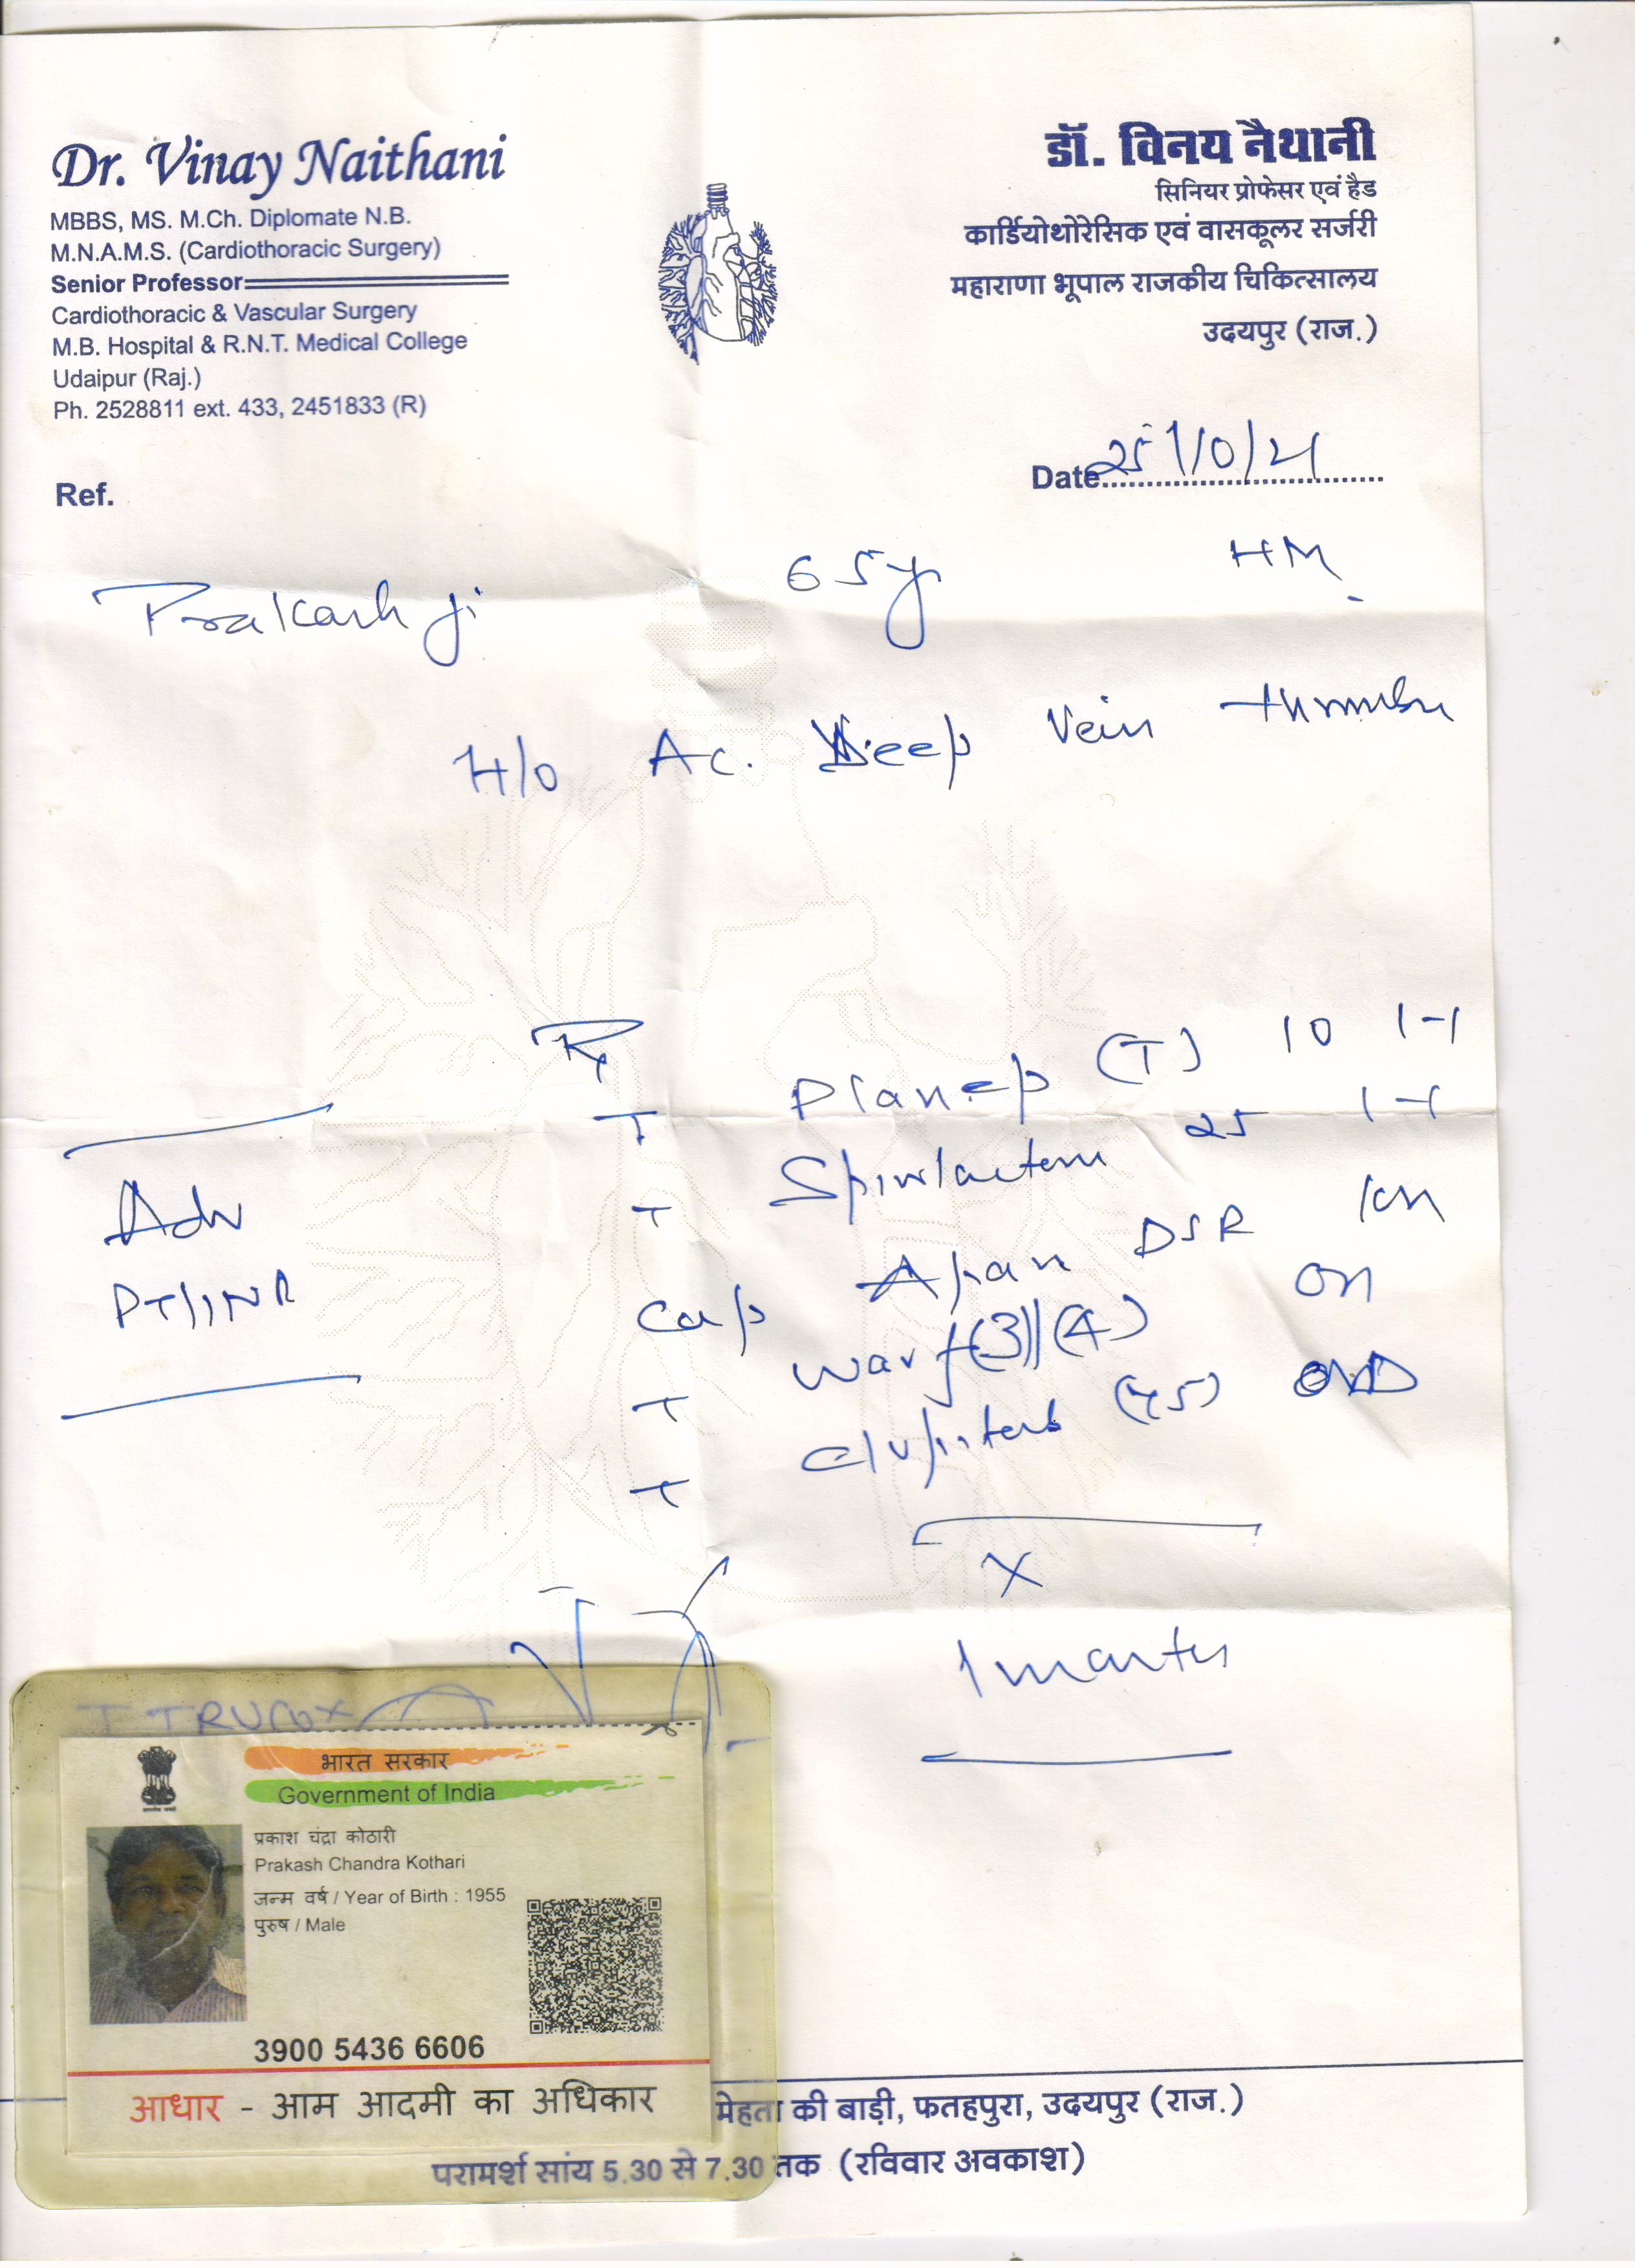 Dr. Vinay Naithani
MBBS, MS. M.Ch. Diplomate N.B.
M.N.A.M.S. (Cardiothoracic Surgery)
Senior Professor
Cardiothoracic & Vascular Surgery
M.B. Hospital & R.N.T. Medical College
Udaipur (Raj.)
Ph. 2528811 ext. 433, 2451833 (R)
डॉ. विनय नैथानी
सिनियर प्रोफेसर एवं हैड
कार्डियोथोरेसिक एवं वासकूलर सर्जरी
महाराणा भूपाल राजकीय चिकित्सालय
उदयपुर (राज.)
Ref.
Date 25/10/21
Prakash ji 65y HM
H/o Ac. Deep Vein
Rx
T (T) 10 1-1
T 25 1-1
Cap DSR
T Warf (3)/(4) on
T (75)
Adv
PT/INR
X
1
भारत सरकार
Government of India
प्रकाश चंद्रा कोठारी
Prakash Chandra Kothari
जन्म वर्ष / Year of Birth : 1955
पुरुष / Male
3900 5436 6606
आधार - आम आदमी का अधिकार
मेहता की बाड़ी, फतहपुरा, उदयपुर (राज.)
परामर्श सांय 5.30 से 7.30 तक (रविवार अवकाश)